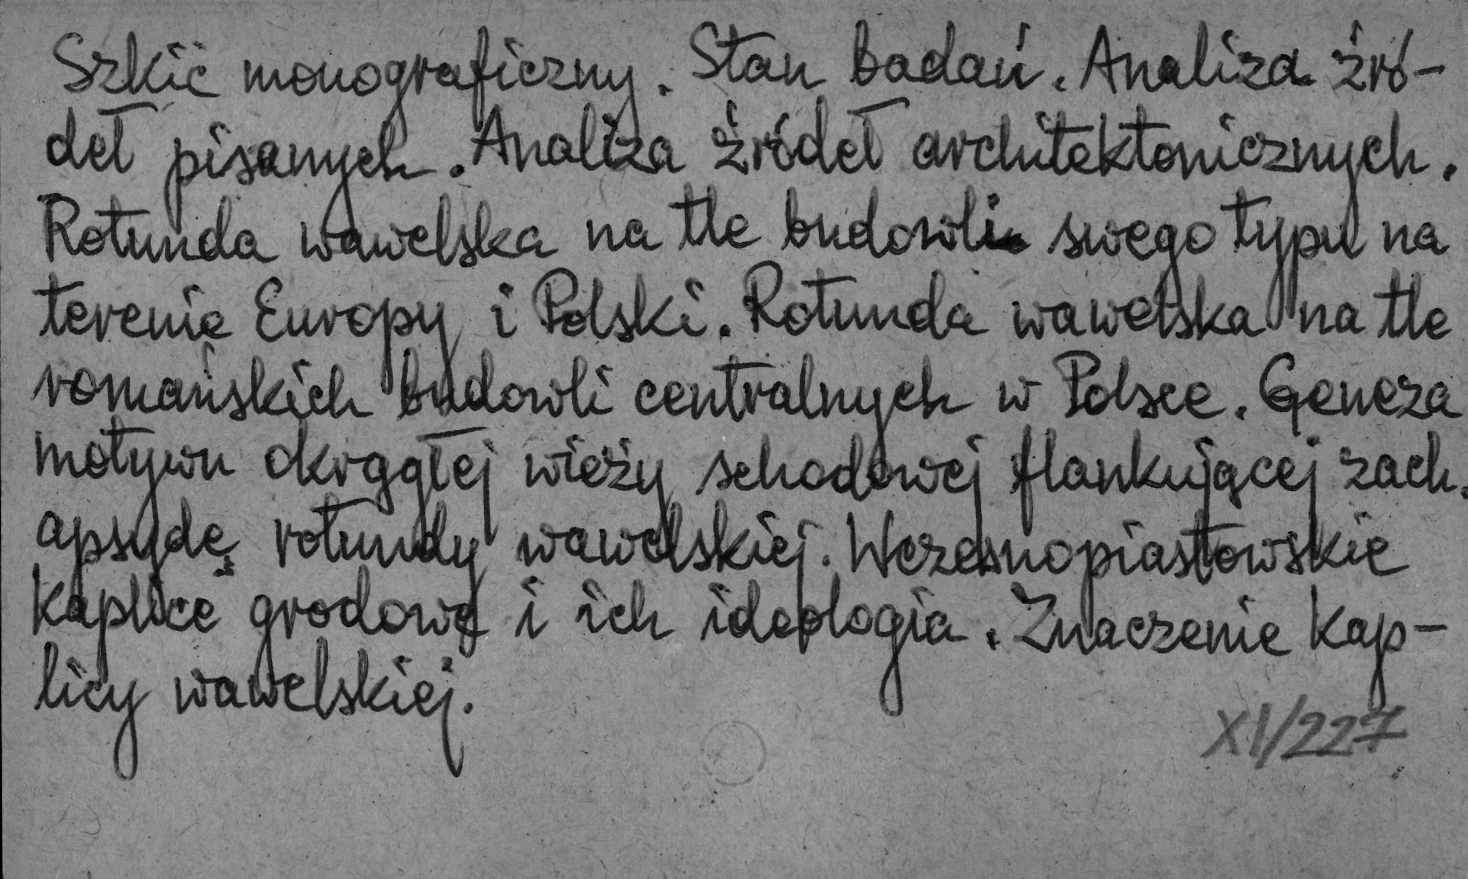 Szkic monograficzny. Stan badań. Analiza źró-
deł pisanych. Analiza źródeł architektonicznych.
Rotunda wawelska na tle budowli swego typu na
terenie Europy i Polski. Rotunda wawelska na tle
romańskich budowli centralnych w Polsce. Geneza
motywu okrągłej wieży schodowej flankującej zach.
apsydę rotundy wawelskiej. Wczesnopiastowskie
kaplice grodowe i ich ideologia. Znaczenie kap-
licy wawelskiej.
XI/227